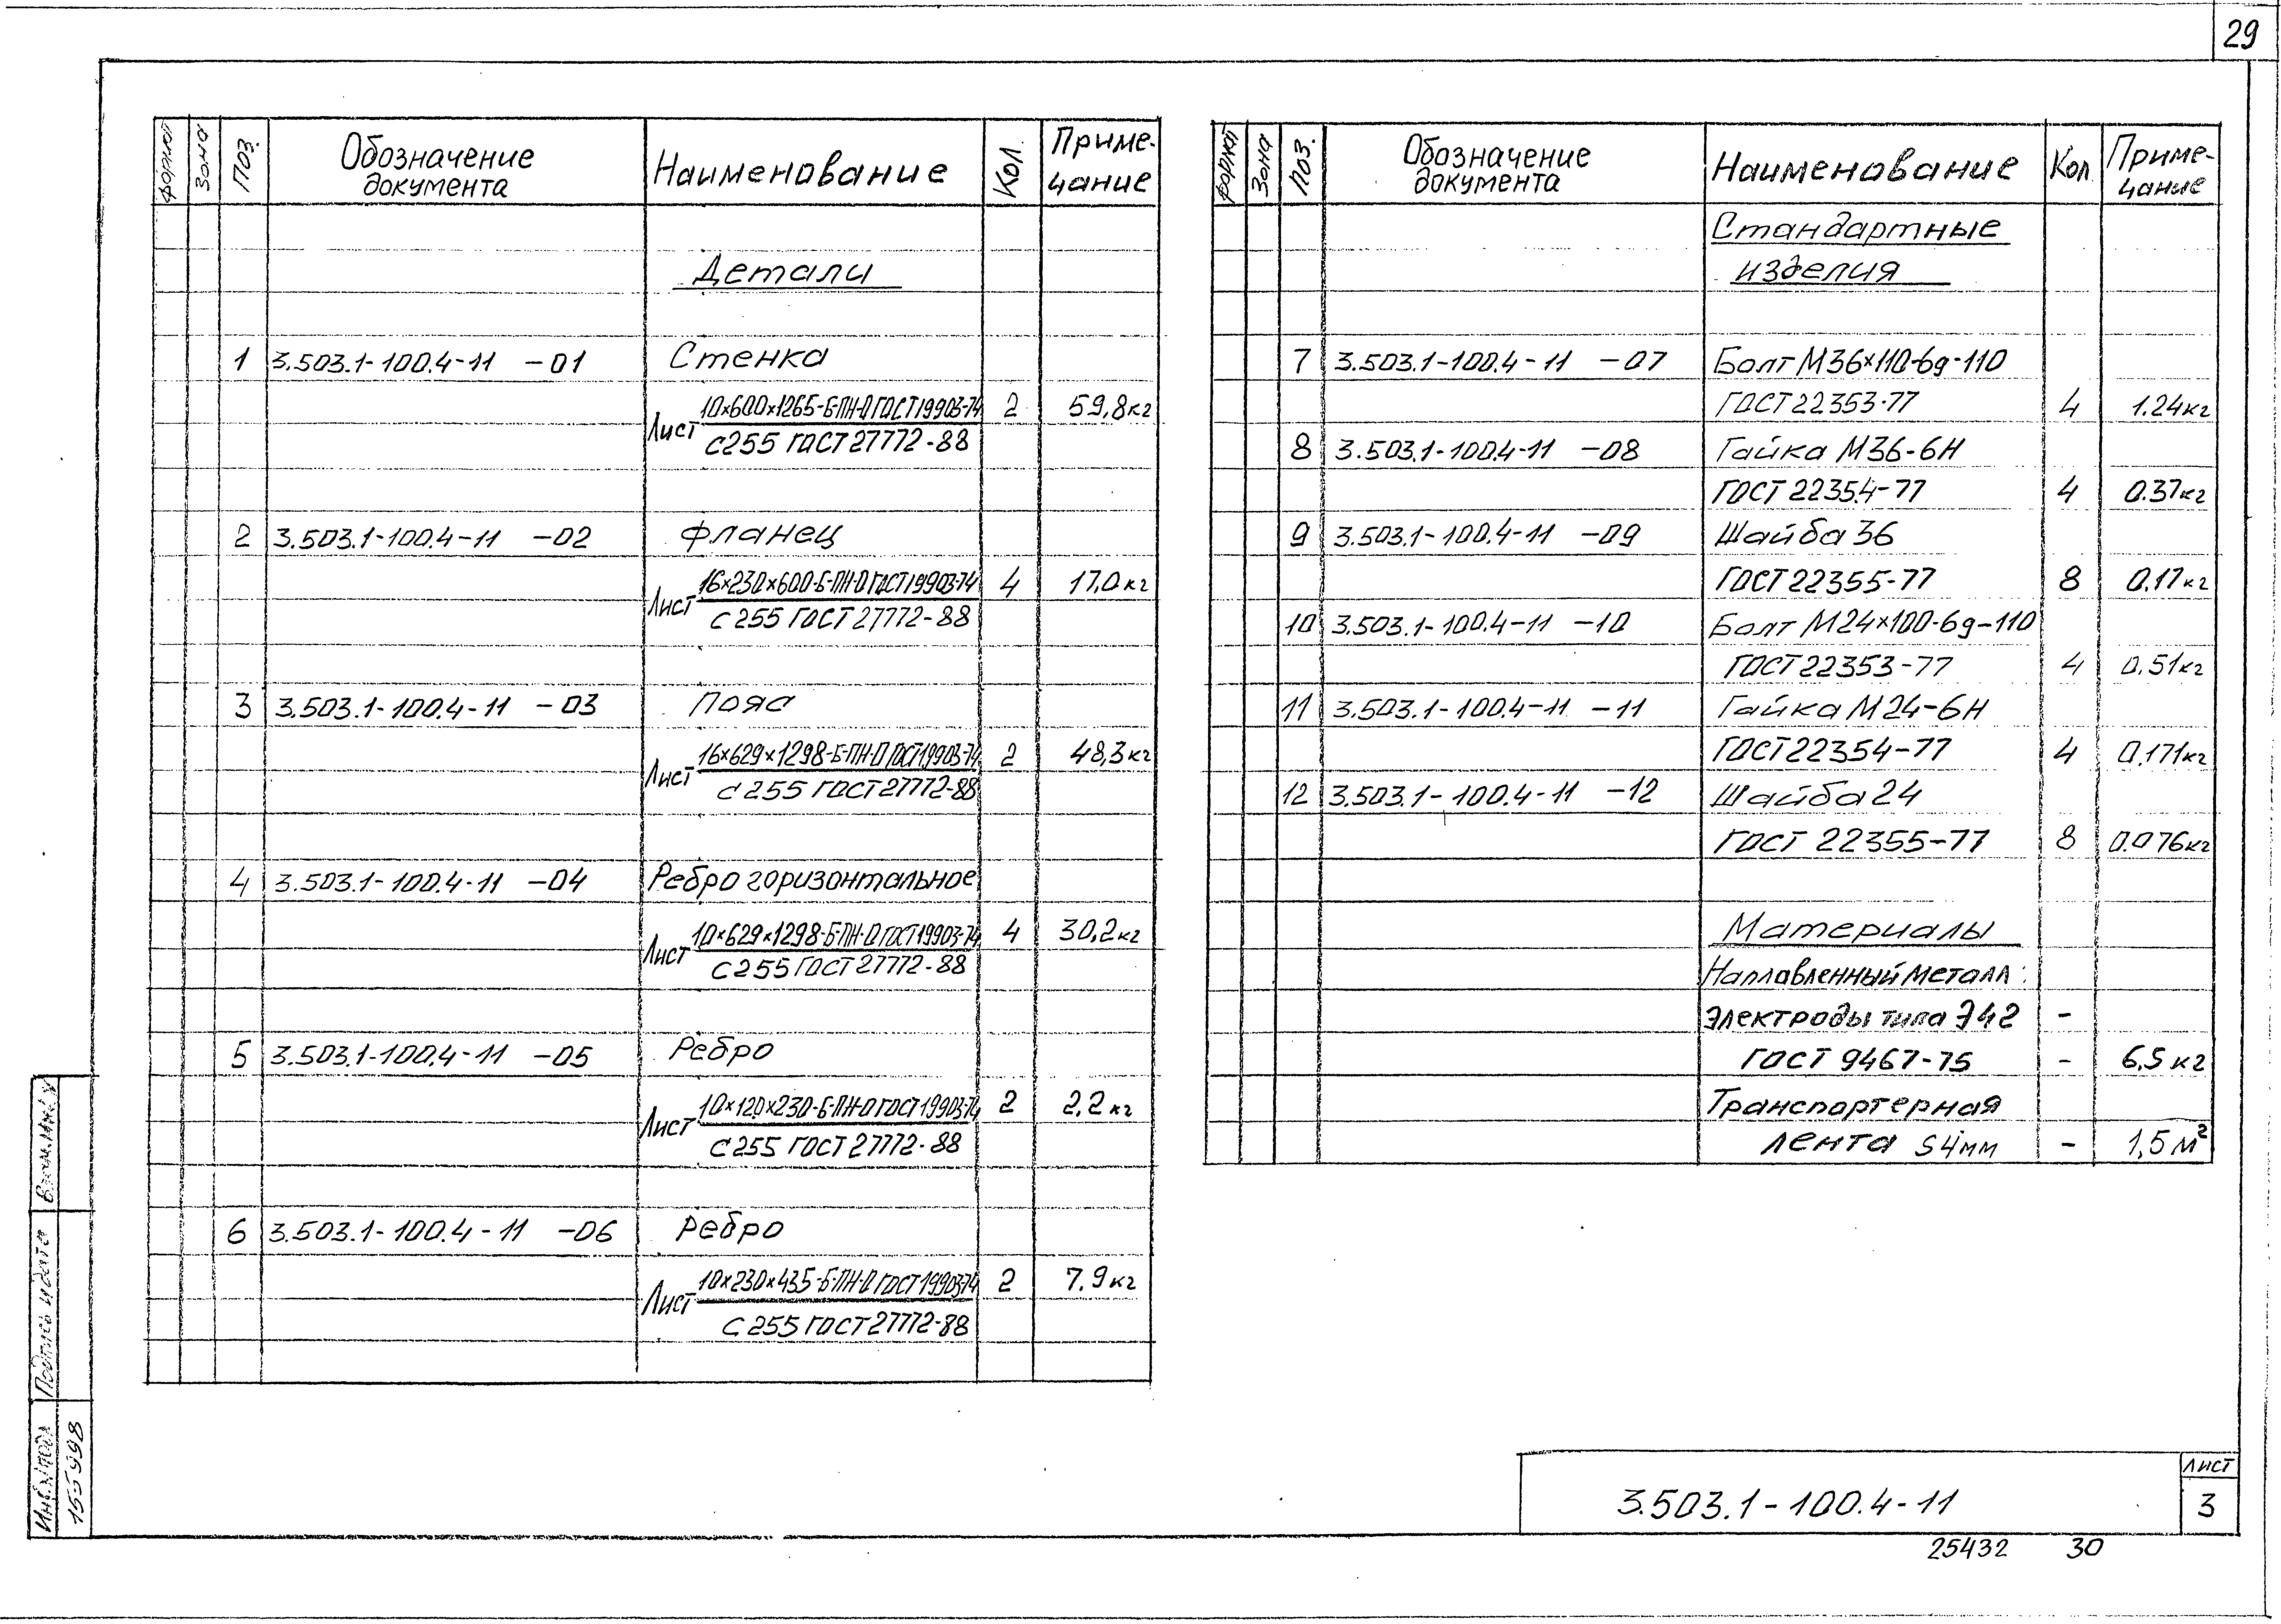 29
Формат Зона Поз. Обозначение документа Наименование Кол. Приме-чание
Детали
1 3.503.1-100.4-11 -01 Стенка
Лист 10×600×1265-Б-ПН-О ГОСТ 19903-74 2 59,8кг
С255 ГОСТ 27772-88
2 3.503.1-100.4-11 -02 Фланец
Лист 16×230×600-Б-ПН-О ГОСТ 19903-74 4 17,0кг
С255 ГОСТ 27772-88
3 3.503.1-100.4-11 -03 Пояс
Лист 16×629×1298-Б-ПН-О ГОСТ 19903-74 2 48,3кг
С255 ГОСТ 27772-88
4 3.503.1-100.4-11 -04 Ребро горизонтальное
Лист 10×629×1298-Б-ПН-О ГОСТ 19903-74 4 30,2кг
С255 ГОСТ 27772-88
5 3.503.1-100.4-11 -05 Ребро
Лист 10×120×230-Б-ПН-О ГОСТ 19903-74 2 2,2кг
С255 ГОСТ 27772-88
6 3.503.1-100.4-11 -06 Ребро
Лист 10×230×435-Б-ПН-О ГОСТ 19903-74 2 7,9кг
С255 ГОСТ 27772-88
Формат Зона Поз. Обозначение документа Наименование Кол Приме-чание
Стандартные
изделия
7 3.503.1-100.4-11 -07 Болт М36×110-6g-110
ГОСТ 22353-77 4 1.24кг
8 3.503.1-100.4-11 -08 Гайка М36-6Н
ГОСТ 22354-77 4 0.37кг
9 3.503.1-100.4-11 -09 Шайба 36
ГОСТ 22355-77 8 0.17кг
10 3.503.1-100.4-11 -10 Болт М24×100-6g-110
ГОСТ 22353-77 4 0,51кг
11 3.503.1-100.4-11 -11 Гайка М24-6Н
ГОСТ 22354-77 4 0.171кг
12 3.503.1-100.4-11 -12 Шайба 24
ГОСТ 22355-77 8 0.076кг
Материалы
Наплавленный металл:
Электроды типа Э42 -
ГОСТ 9467-75 - 6,5 кг
Транспортерная
лента S4мм - 1,5 м²
Взам.инв.№
Подпись и дата
Инв.№подл
155999В
3.503.1-100.4-11
Лист
3
25432 30